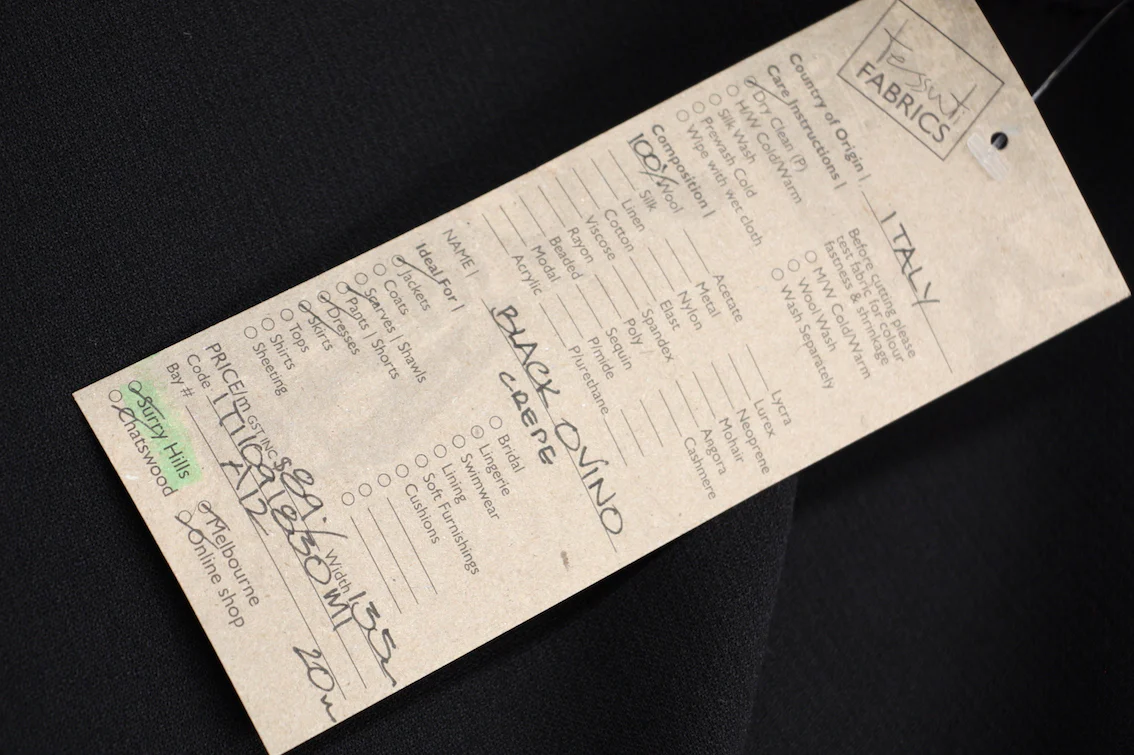 Tessuti
FABRICS
Country of Origin | ITALY
Care Instructions |
Dry Clean (P)
H/W Cold/Warm
Silk Wash
Prewash Cold
Wipe with wet cloth
Before cutting please
test fabric for colour
fastness & shrinkage
M/W Cold/Warm
Wool Wash
Wash Separately
Composition |
100% Wool
Silk
Linen
Cotton
Viscose
Rayon
Beaded
Modal
Acrylic
Acetate
Metal
Nylon
Elast
Spandex
Poly
Sequin
P/mide
P/urethane
Lycra
Lurex
Neoprene
Mohair
Angora
Cashmere
NAME | BLACK OVINO
CREPE
Ideal For |
Jackets
Coats
Scarves | Shawls
Pants | Shorts
Dresses
Skirts
Tops
Shirts
Sheeting
Bridal
Lingerie
Swimwear
Lining
Soft Furnishings
Cushions
PRICE/m GST INC $89./ Width 135
Code
Bay # A12
20m
Surry Hills
Chatswood
Melbourne
Online shop